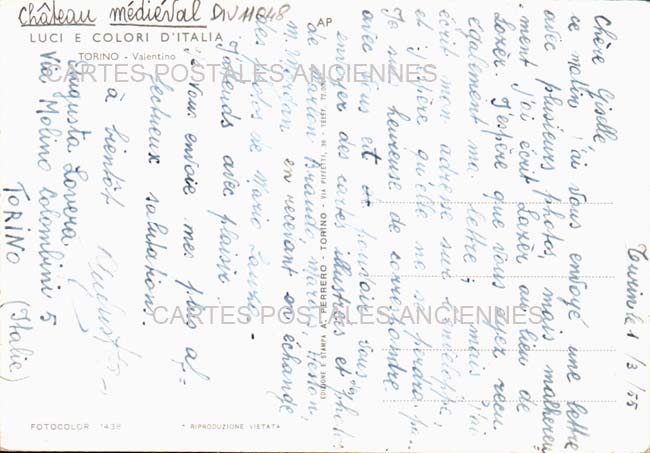 Château médiéval DIV11048
LUCI E COLORI D'ITALIA
TORINO - Valentino
AP
CARTES POSTALES ANCIENNES
CARTES POSTALES ANCIENNES
EDIZIONE E STAMPA A. PERRERO - TORINO - VIA PIFFETTI,
FOTOCOLOR 1438
* RIPRODUZIONE VIETATA
Turin le 1/3/55
Chère Giselle,
ce matin j'ai vous envoyé une lettre
avec plusieurs photos, mais malhereu
ment j'ai écrit Lozèr au lieu de
Lozèr. J'espère que vous ayez reçu
également ma lettre, mais j'ai
écrit mon adresse sur l'enveloppe,
et j'espère qu'elle ne se perdra pas.
Je suis heureuse de correspondre
avec vous et je pourrais vous
envoyer des cartes illustrées et photos
de Marlon Brando,
en recevant en échange
des photos de Mario Lanza.
J'attends avec plaisir
Je vous envoie mes plus af=
fectueux salutations.
à bientôt Augusta
Augusta Lovera
Via Molino Colombini 5
TORINO (Italie)